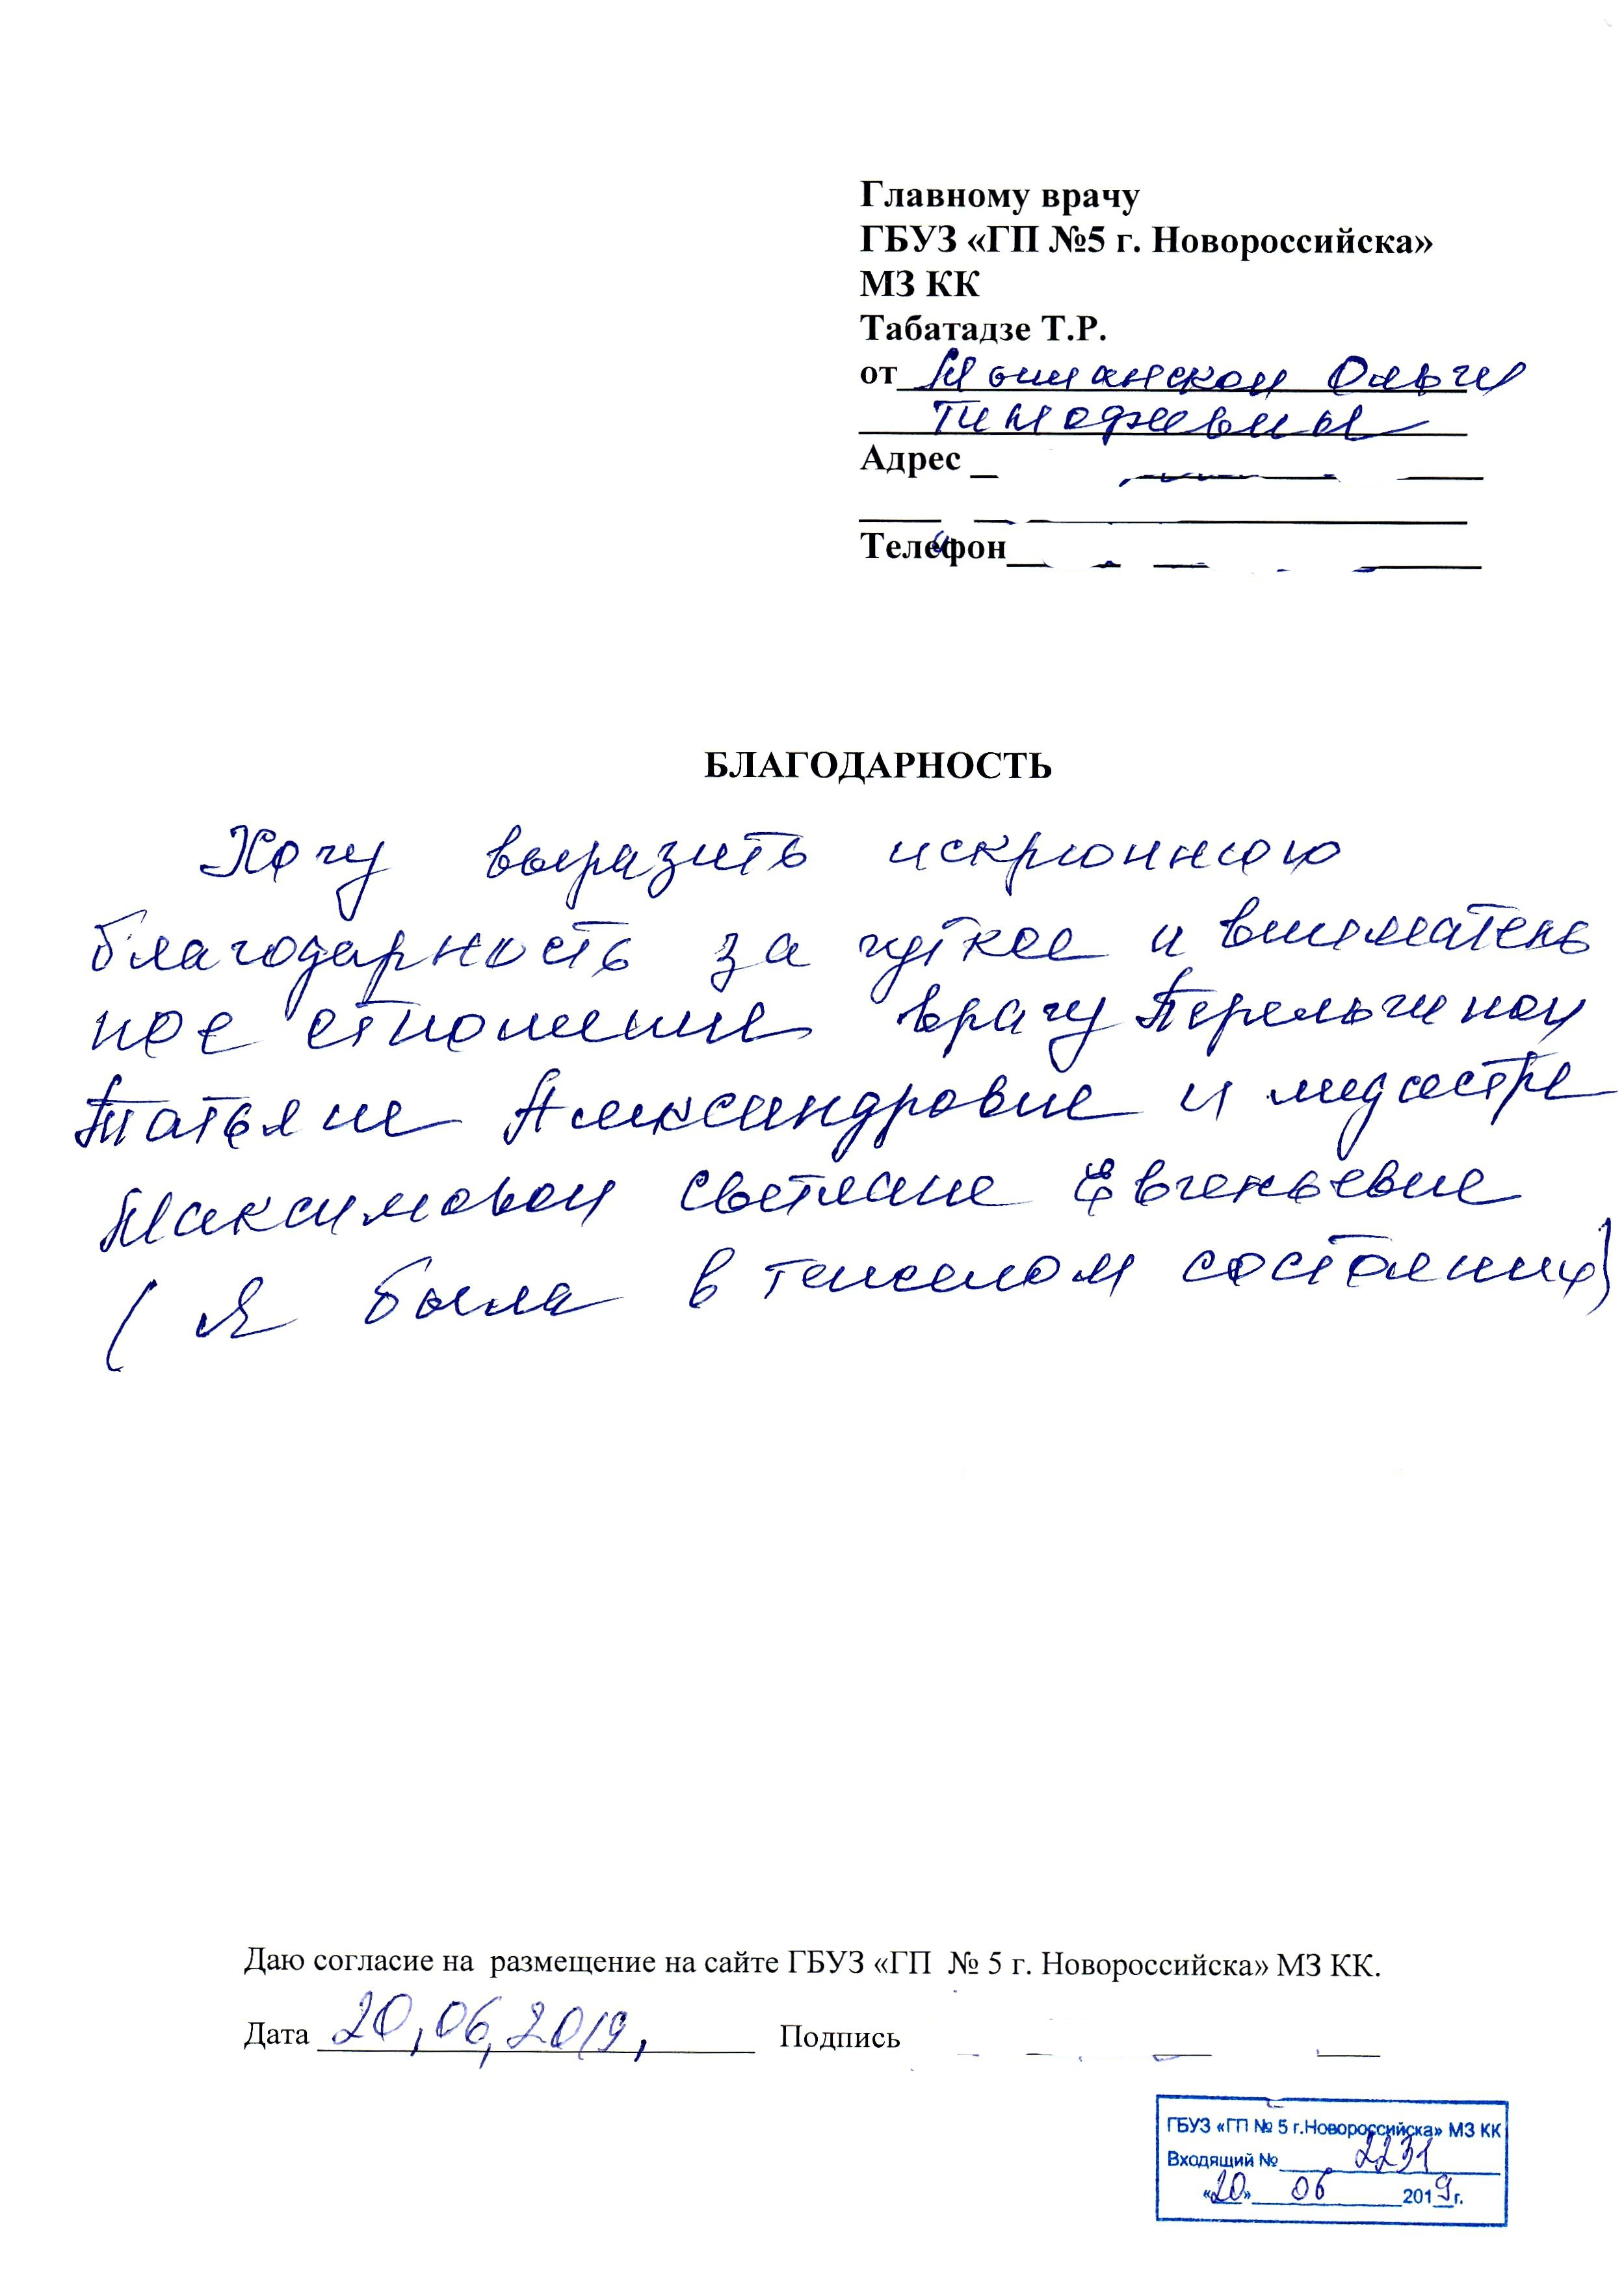 Главному врачу
ГБУЗ «ГП №5 г. Новороссийска»
МЗ КК
Табатадзе Т.Р.
от Мошанской Ольги
Тимофеевны
Адрес
Телефон
БЛАГОДАРНОСТЬ
Хочу выразить искреннюю
благодарность за чуткое и вниматель
ное отношение врачу Перельгиной
Татьяне Александровне и медсестре
Максимовой Светлане Евгеньевне
(Я была в тяжелом состоянии)
Даю согласие на размещение на сайте ГБУЗ «ГП № 5 г. Новороссийска» МЗ КК.
Дата 20,06,2019, Подпись
ГБУЗ «ГП № 5 г.Новороссийска» МЗ КК
Входящий № 2231
«20» 06 2019г.